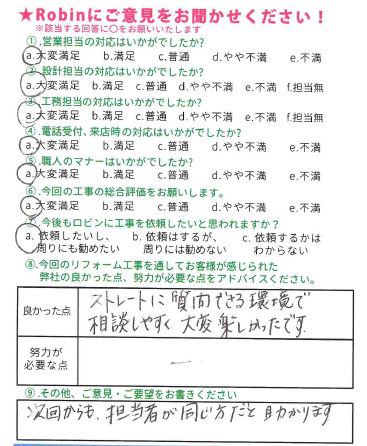 ★Robinにご意見をお聞かせください！
※該当する回答に〇をお願いいたします
①.営業担当の対応はいかがでしたか?
a.大変満足 b.満足 c.普通 d.やや不満 e.不満
②.設計担当の対応はいかがでしたか?
a.大変満足 b.満足 c.普通 d.やや不満 e.不満 f.担当無
③.工務担当の対応はいかがでしたか?
a.大変満足 b.満足 c.普通 d.やや不満 e.不満 f.担当無
④.電話受付、来店時の対応はいかがでしたか?
a.大変満足 b.満足 c.普通 d.やや不満 e.不満
⑤.職人のマナーはいかがでしたか?
a.大変満足 b.満足 c.普通 d.やや不満 e.不満
⑥.今回の工事の総合評価をお願いします。
a.大変満足 b.満足 c.普通 d.やや不満 e.不満
⑦.今後もロビンに工事を依頼したいと思われますか？
a. 依頼したいし、 b. 依頼はするが、 c. 依頼するかは
周りにも勧めたい 周りには勧めない わからない
⑧.今回のリフォーム工事を通してお客様が感じられた
弊社の良かった点、努力が必要な点をアドバイスください。
良かった点
ストレートに質問できる環境で
相談しやすく大変楽しかったです.
努力が
必要な点
—
⑨.その他、ご意見・ご要望をお書きください
次回からも、担当者が同じ方だと助かります